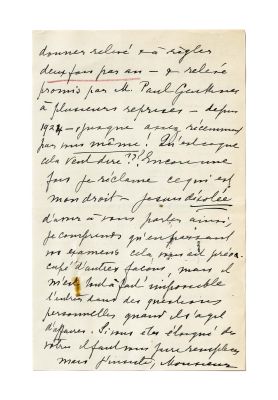 donner relevé & à régler
deux fois par an — & relevé
promis par M. Paul Geuthner
à plusieurs reprises — depuis
1924 — jusque assez récemment
par vous même. Qu'est ce que
cela veut dire ??! Encore une
fois je réclame ce qui est
mon droit — je suis désolée
d'avoir à vous parler ainsi,
je comprends qu'en passant
vos examens cela vous ait préoc-
cupé d'autres façons, mais il
m'est tout à fait impossible
d'entrer dans des questions
personnelles quand il s'agit
d'affaires. Si vous êtes éloigné de
votre il faut vous faire remplacer
mais j'insiste, Monsieur